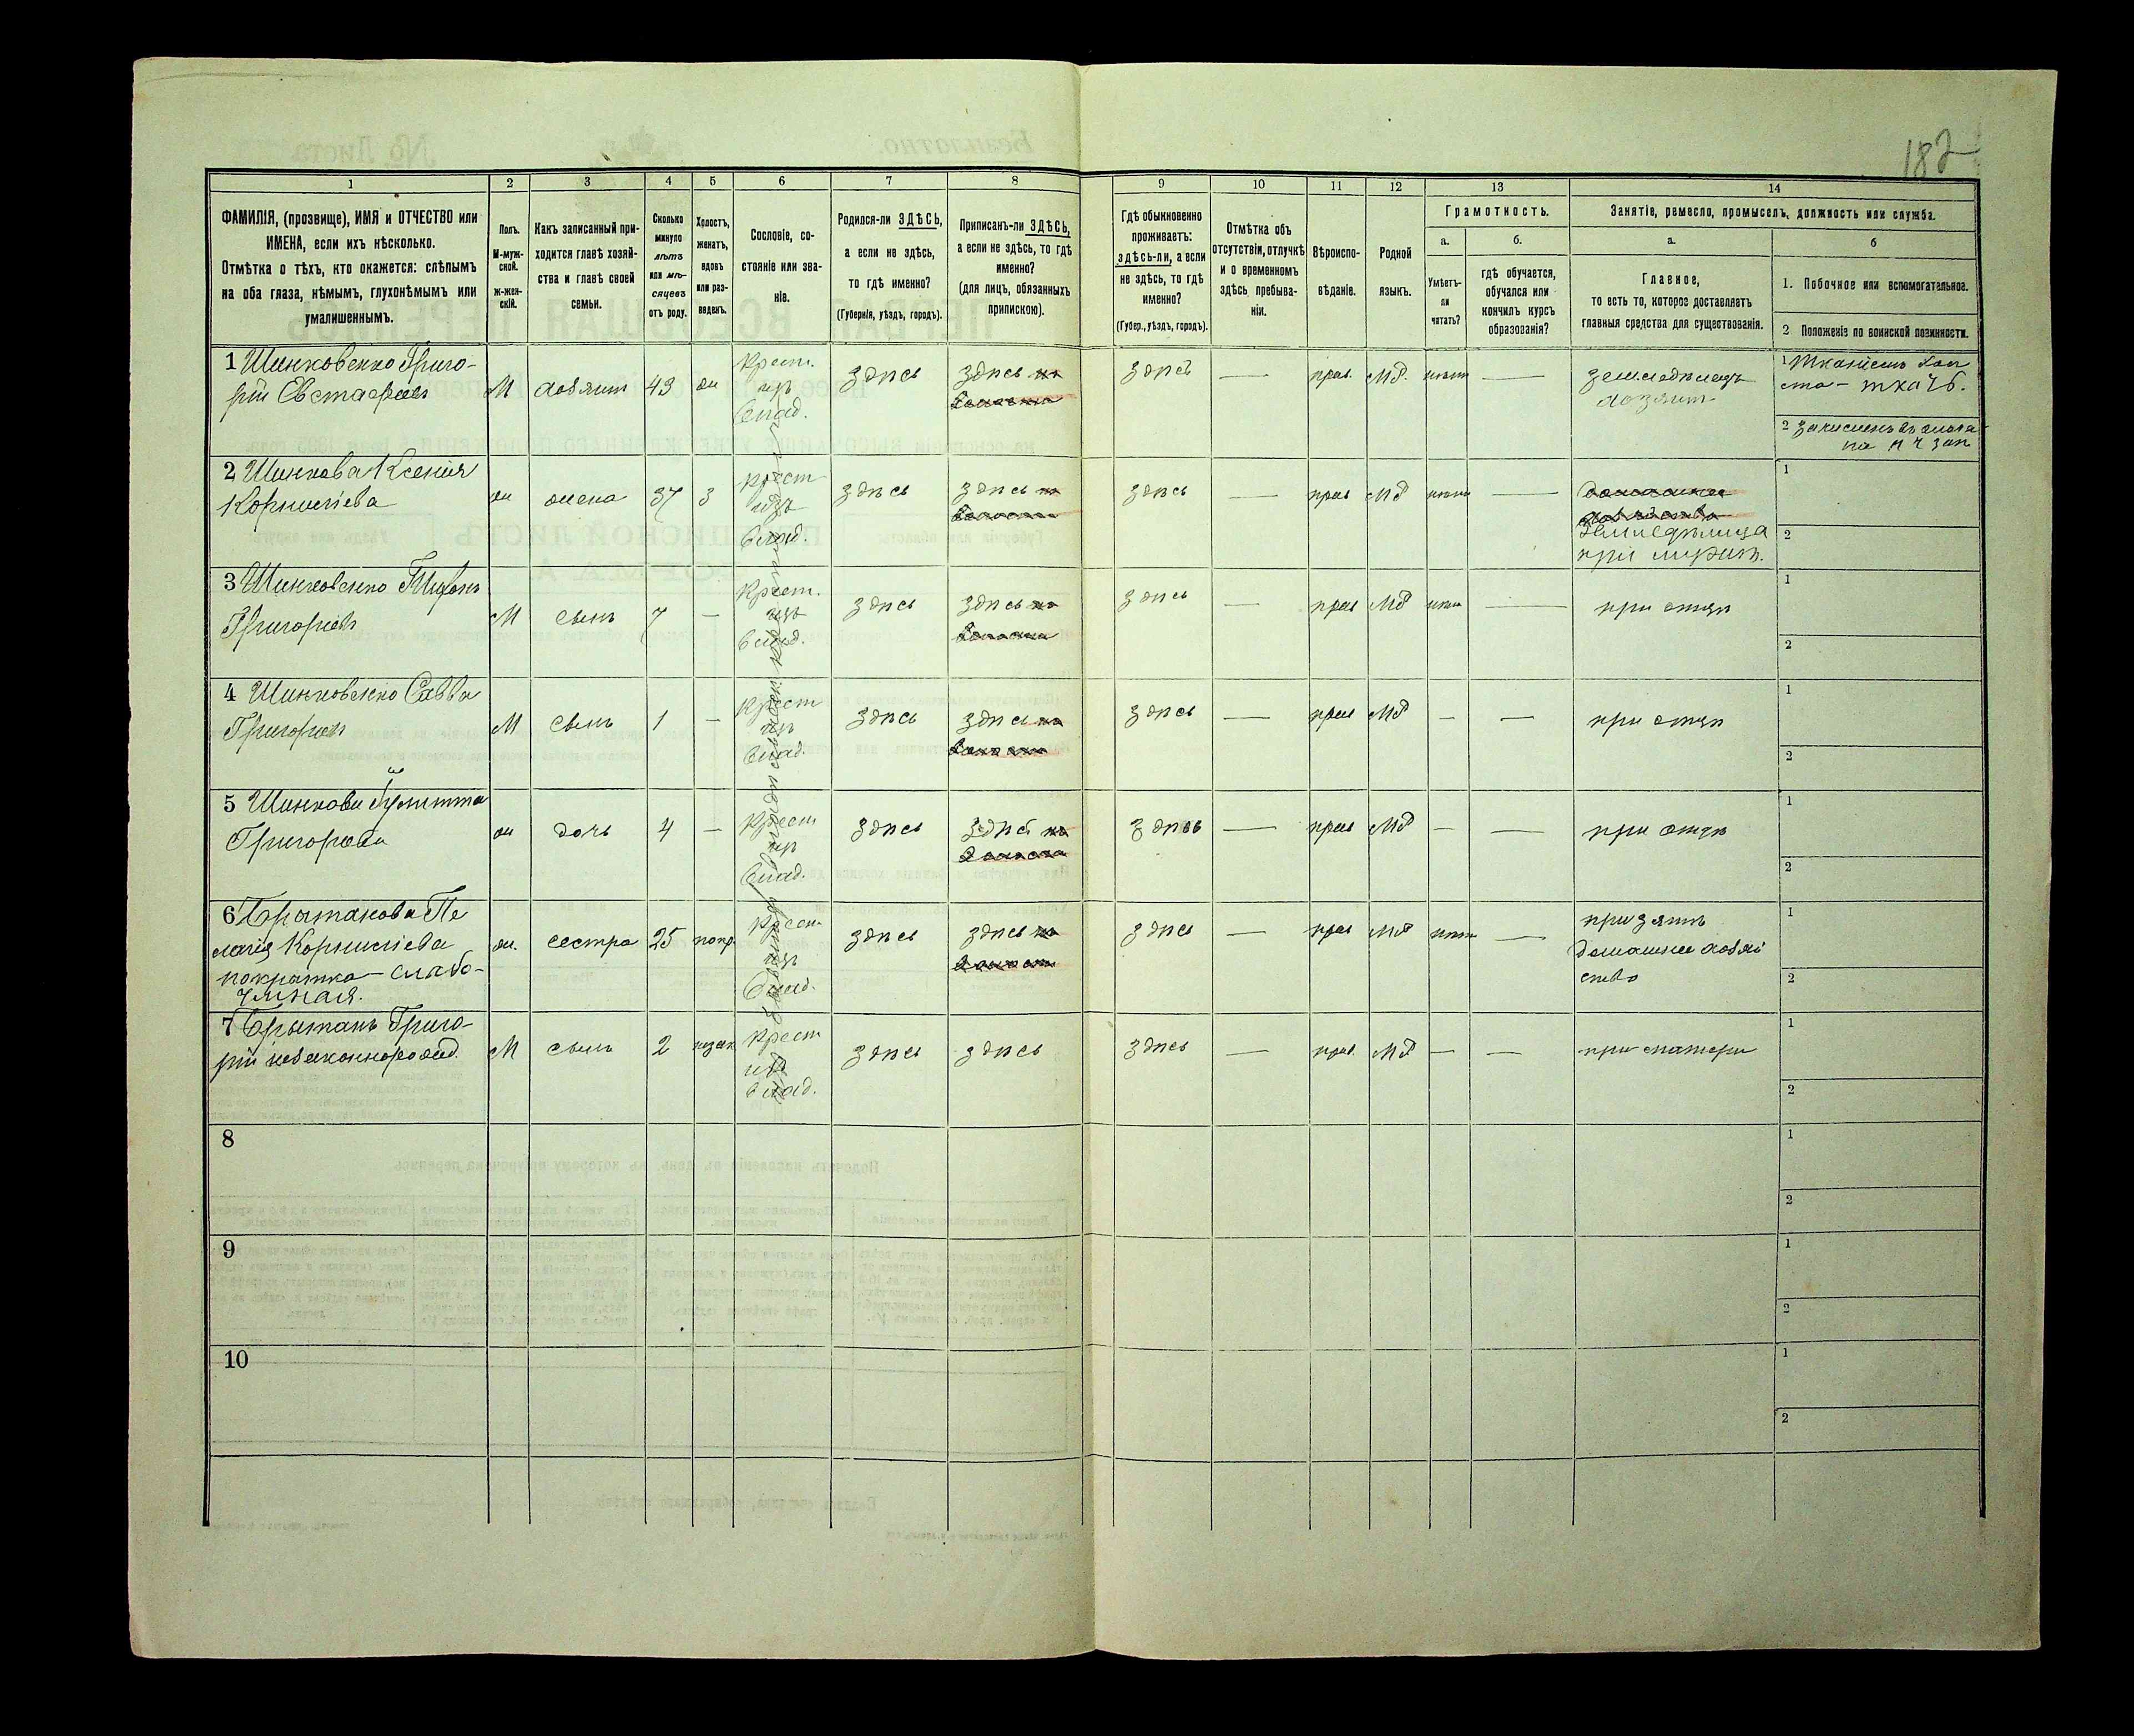 182
1
2
3
4
5
6
7
8
9
10
11
12
13
14
ФАМИЛІЯ, (прозвище), ИМЯ и ОТЧЕСТВО или
ИМЕНА, если ихъ нѣсколько.
Отмѣтка о тѣхъ, кто окажется: слѣпымъ
на оба глаза, нѣмымъ, глухонѣмымъ или
умалишеннымъ.
Полъ.
М-муж-
ской.
ж-жен-
скій.
Какъ записанный при-
ходится главѣ хозяй-
ства и главѣ своей
семьи.
Сколько
минуло
лѣтъ
или мѣ-
сяцевъ
отъ роду.
Холостъ,
женатъ,
вдовъ
или раз-
веденъ.
Сословіе, со-
стояніе или зва-
ніе.
Родился-ли ЗДѢСЬ,
а если не здѣсь,
то гдѣ именно?
(Губернія, уѣздъ, городъ).
Приписанъ-ли ЗДѢСЬ,
а если не здѣсь, то гдѣ
именно?
(для лицъ, обязанныхъ
припискою).
Гдѣ обыкновенно
проживаетъ:
здѣсь-ли, а если
не здѣсь, то гдѣ
именно?
(Губер., уѣздъ, городъ).
Отмѣтка объ
отсутствіи, отлучкѣ
и о временномъ
здѣсь пребыва-
ніи.
Вѣроиспо-
вѣданіе.
Родной
языкъ.
Грамотность.
а.
Умѣетъ-
ли
читать?
б.
гдѣ обучается,
обучался или
кончилъ курсъ
образованія?
Занятіе, ремесло, промыселъ, должность или служба.
а.
Главное,
то есть то, которое доставляетъ
главныя средства для существованія.
б
1. Побочное или вспомогательное.
2 Положеніе по воинской повинности.
1 Шинковенко Григо-
рій Евстафіевъ
М
хозяинъ
43
ж
Крест.
изъ
влад.
здѣсь
здѣсь
здѣсь
—
прав.
Мр.
нѣтъ
—
земледѣлецъ
хозяинъ
1
ткачъ.
2
2 Шинкова Ксенія
Корниліева
ж
жена
37
з
Крест
изъ
влад.
здѣсь
здѣсь
здѣсь
—
прав
Мр
нѣтъ
—
при мужѣ.
1
2
3 Шинковенко Тихонъ
Григоріевъ
М
сынъ
7
—
Крест.
изъ
влад.
здѣсь
здѣсь
здѣсь
—
прав
Мр
нѣтъ
—
при отцѣ
1
2
4 Шинковенко Савва
Григоріевъ
М
сынъ
1
—
Крест
изъ
влад.
здѣсь
здѣсь
здѣсь
—
прав
Мр
—
—
при отцѣ
1
2
5 Шинкова Іулитта
Григорьева
ж
дочь
4
—
Крест
изъ
влад.
здѣсь
здѣсь
здѣсь
—
прав
Мр
—
—
при отцѣ
1
2
6 Брытанова Пе
лагія Корниліева
покрытка — слабо-
умная.
ж.
сестра
25
покр.
Крест
изъ
влад.
здѣсь
здѣсь
здѣсь
—
прав
Мр
нѣтъ
—
при зятѣ
домашнее хозяй
ство
1
2
7 Брытанъ Григо-
рій незаконнорожд.
М
сынъ
2
незак
Крест
изъ
влад.
здѣсь
здѣсь
здѣсь
—
прав.
Мр
—
—
при матери
1
2
8
1
2
9
1
2
10
1
2